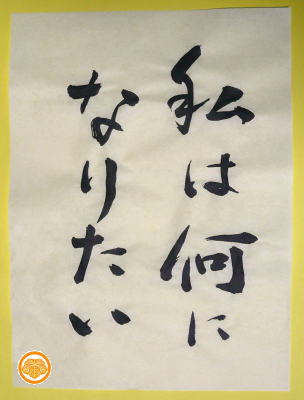 私は何に
なりたい